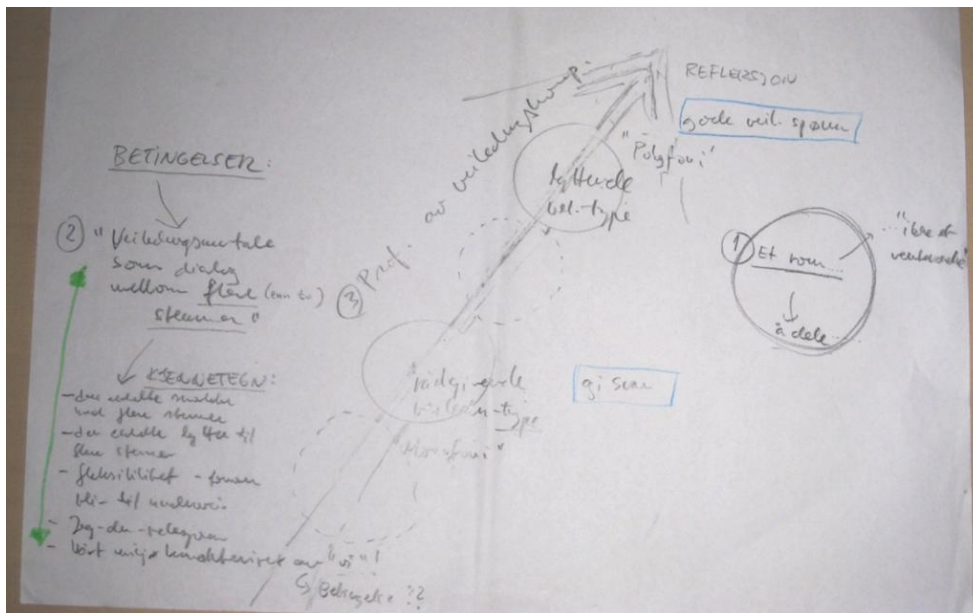 BETINGELSER:
② "Veiledningssamtale
som dialog
mellom flere (enn to)
stemmer"
KJENNETEGN:
- den enkelte snakker
med flere stemmer
- den enkelte lytter til
flere stemmer
- fleksibilitet -
blir til underveis
- Jeg-du-relasjonen
- vårt miljø karakterisert av "vi"!
↳ Betingelse ??
③ Prof. av veiledningskomp.
REFLEKSJON
gode veil. spørsm
"Polyfoni"
lyttende
veil.-type
rådgivende
veileder-type
"Monofoni"
gi svar
① Et rom...
å dele...